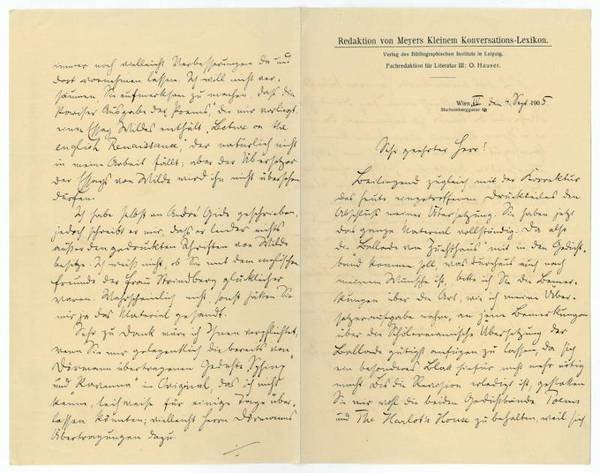 Redaktion von Meyers Kleinem Konversations-Lexikon.
Verlag des Bibliographischen Instituts in Leipzig.
Fachredaktion für Literatur III: O. Hauser.
Wien, den 4. Sept. 1905
Sehr geehrter Herr!
Beiliegend zugleich mit der Korrektur
des heute eingetroffenen Druckteiles den
Abschluß meiner Übersetzung. Sie haben jetzt
das ganze Material vollständig. Da also
die Ballade vom Zuchthaus mit in den Gedicht-
band kommen soll, was durchaus auch nach
meinem Wunsche ist, bitte ich Sie die Bemer-
kungen über die Art, wie ich meine Über-
setzeraufgabe nahm, an jene Bemerkungen
über die Übersetzung der
Ballade gütigst anfügen zu lassen, da sich
ein besonderes Blatt hiefür nicht mehr nötig
macht. Bis die Revision erledigt ist, gestatten
Sie mir wohl die beiden Gedichtbände Poems
und The Harlot's House zu behalten, weil sich
immer noch vielleicht Verbesserungen da und
dort vornehmen lassen. Ich will nicht ver-
säumen Sie aufmerksam zu machen, daß die
Pariser Ausgabe der Poems, die mir vorliegt,
einen Essay Wildes enthält, Lecture on the
english Renaissance, der natürlich nicht
in meine Arbeit fällt, aber der Übersetzer
der Essays von Wilde wird ihn nicht übersehen
dürfen.
Ich habe selbst an André Gide geschrieben,
jedoch schreibt er mir, daß er leider nichts
außer den gedruckten Schriften von Wilde
besitze. Ich weiß nicht, ob Sie mit dem
Freunde der Frau Strindberg glücklicher
waren. Wahrscheinlich nicht, sonst hätten Sie
mir ja das Material gesandt.
Sehr zu Dank wäre ich Ihnen verpflichtet,
wenn Sie mir gelegentlich die bereits von
Dörmann übertragenen Gedichte Sphinx
und Ravenna in Original, das ich nicht
kenne, leihweise für einige Tage über-
lassen könnten; vielleicht Herrn Dörmanns
Übertragungen dazu.